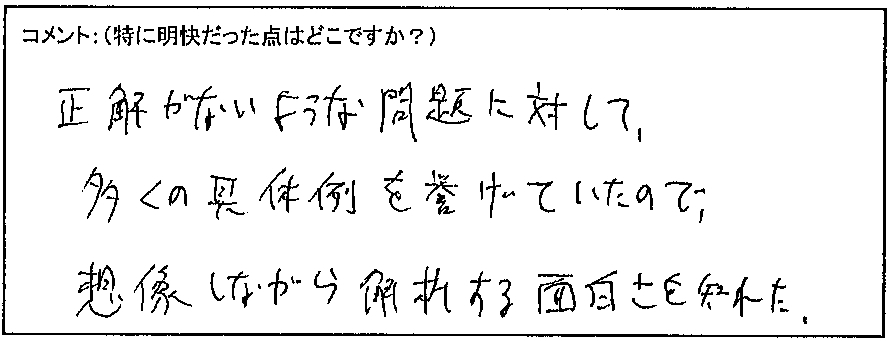 コメント：（特に明快だった点はどこですか？）
正解がないような問題に対して、
多くの具体例を誉げていたので、
想像しながら解析する面白さを知れた。